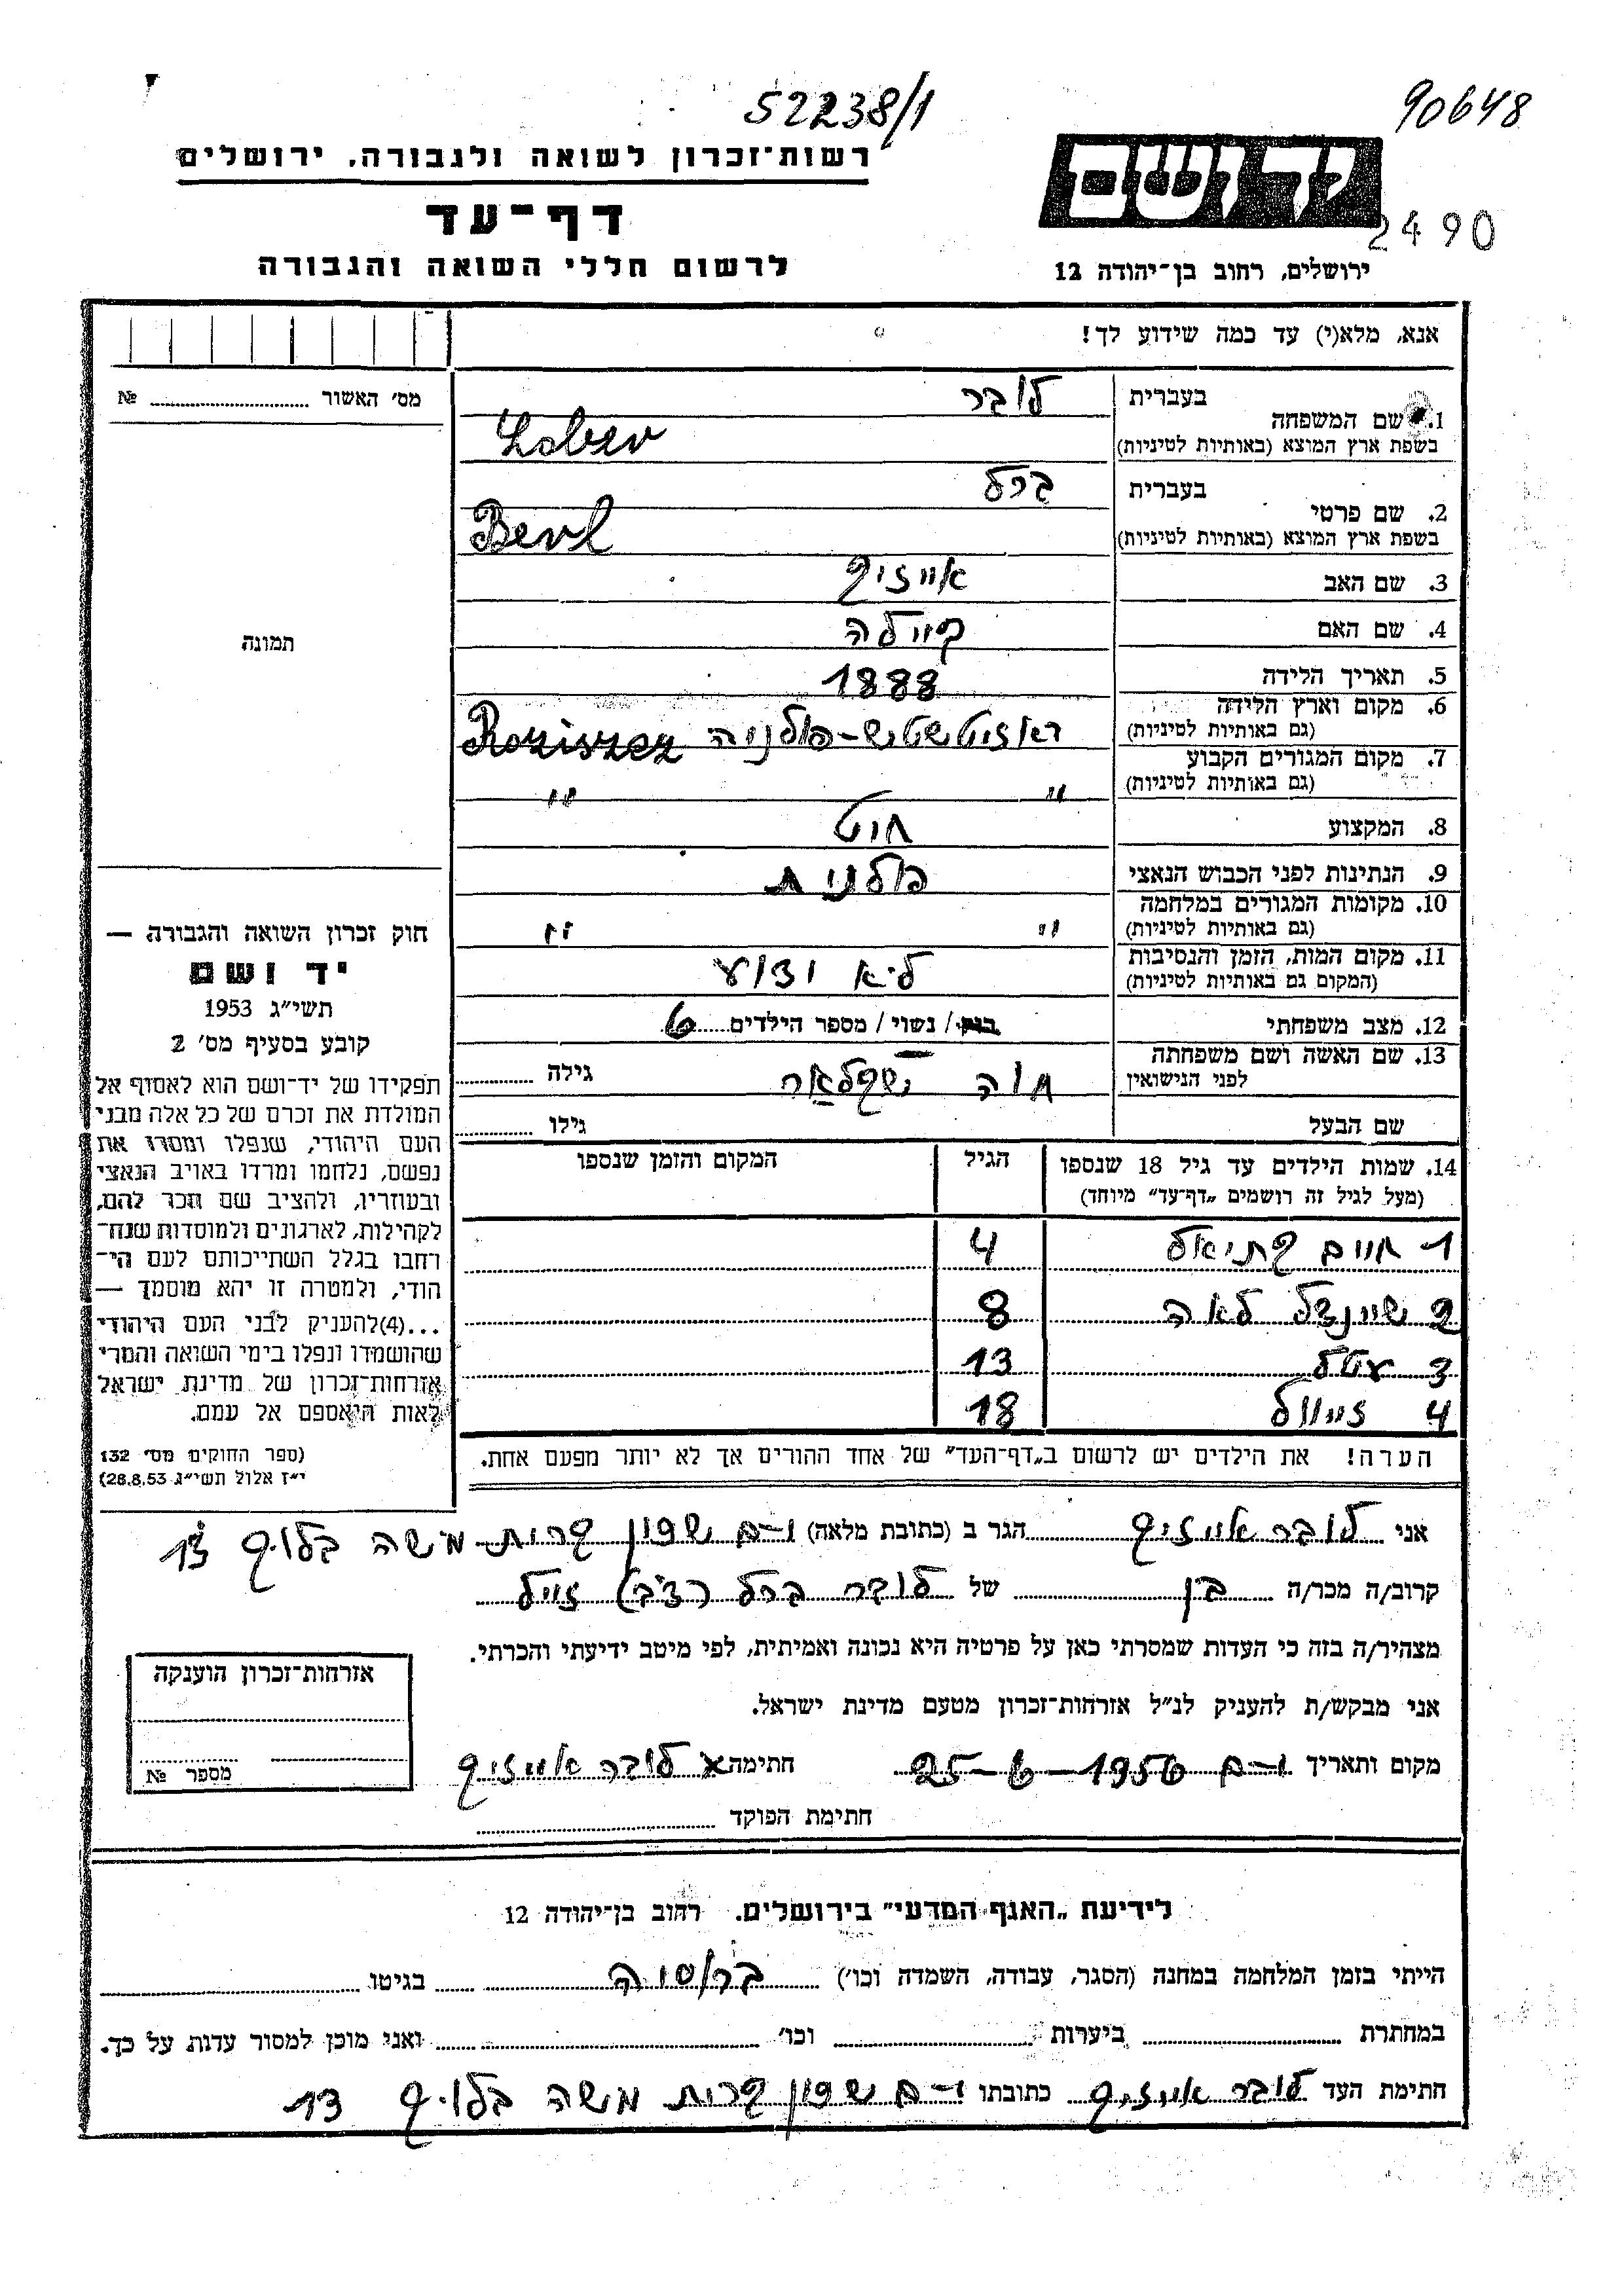 52238/1
90648
רשות־זכרון לשואה ולגבורה, ירושלים
דף־עד
לרשום חללי השואה והגבורה
יד ושם
2490
ירושלים, רחוב בן־יהודה 12
אנא, מלא(י) עד כמה שידוע לך!
מס׳ האשור № 
תמונה
1. שם המשפחה
בעברית לובר
בשפת ארץ המוצא (באותיות לטיניות) Lober
2. שם פרטי
בעברית ברל
בשפת ארץ המוצא (באותיות לטיניות) Berl
3. שם האב אייזיק
4. שם האם ביילה
5. תאריך הלידה 1888
6. מקום וארץ הלידה
(גם באותיות לטיניות) ראזישטש־פולניה Roziszcz
7. מקום המגורים הקבוע
(גם באותיות לטיניות) " "
8. המקצוע חיט
9. הנתינות לפני הכבוש הנאצי פולנית
10. מקומות המגורים במלחמה
(גם באותיות לטיניות) " "
11. מקום המות, הזמן והנסיבות
(המקום גם באותיות לטיניות) לא ידוע
12. מצב משפחתי רווק / נשוי / מספר הילדים 6
13. שם האשה ושם משפחתה
לפני הנישואין חוה שקלאר גילה
שם הבעל גילו
14. שמות הילדים עד גיל 18 שנספו
(מעל לגיל זה רושמים „דף־עד״ מיוחד)
הגיל
המקום והזמן שנספו
1 חיים יקתיאל 4
2 שיינדל לאה 8
3 עטל 13
4 זיוול 18
הערה! את הילדים יש לרשום ב„דף־העד״ של אחד ההורים אך לא יותר מפעם אחת.
חוק זכרון השואה והגבורה —
יד ושם
תשי״ג 1953
קובע בסעיף מס׳ 2
תפקידו של יד־ושם הוא לאסוף אל
המולדת את זכרם של כל אלה מבני
העם היהודי, שנפלו ומסרו את
נפשם, נלחמו ומרדו באויב הנאצי
ובעוזריו, ולהציב שם וזכר להם,
לקהילות, לארגונים ולמוסדות שנח־
רחבו בגלל השתייכותם לעם הי־
הודי, ולמטרה זו יהא מוסמך —
...(4)להעניק לבני העם היהודי
שהושמדו ונפלו בימי השואה והמרי
אזרחות־זכרון של מדינת ישראל
לאות היאספם אל עמם.
(ספר החוקים מס׳ 132
י״ז אלול תשי״ג 28.8.53)
אני לובר אייזיק הגר ב (כתובת מלאה) י־ם שכון קרית משה בלוק 13
קרוב/ה מכר/ה בן של לובר ברל
מצהיר/ה בזה כי העדות שמסרתי כאן על פרטיה היא נכונה ואמיתית, לפי מיטב ידיעתי והכרתי.
אני מבקש/ת להעניק לנ״ל אזרחות־זכרון מטעם מדינת ישראל.
מקום ותאריך י־ם 25-6-1956 חתימה x לובר אייזיק
חתימת הפוקד
אזרחות־זכרון הוענקה
מספר №
לידיעת „האגף המדעי״ בירושלים. רחוב בן־יהודה 12
הייתי בזמן המלחמה במחנה (הסגר, עבודה, השמדה וכו׳) ברוסיה בגיטו
במחתרת ביערות וכו׳ ואני מוכן למסור עדות על כך.
חתימת העד לובר אייזיק כתובתו י־ם שכון קרית משה בלוק 13